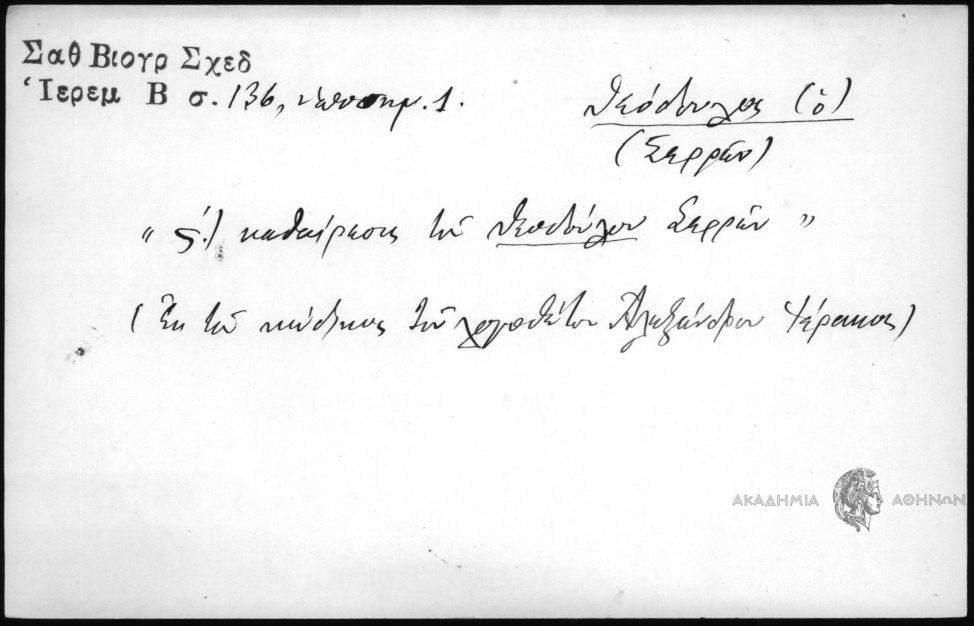 Σαθ Βιογρ Σχεδ
Ἱερεμ Β σ. 136, ὑποσημ. 1.
Θεόδουλος (ὁ)
(Σερρῶν)
“ ς΄.) καθαίρεσις τοῦ Θεοδούλου Σερρῶν ”
(Ἐκ τοῦ κώδικος τοῦ λογοθέτου Ἀλεξάνδρου Ψέρακος)
ΑΚΑΔΗΜΙΑ ΑΘΗΝΩΝ